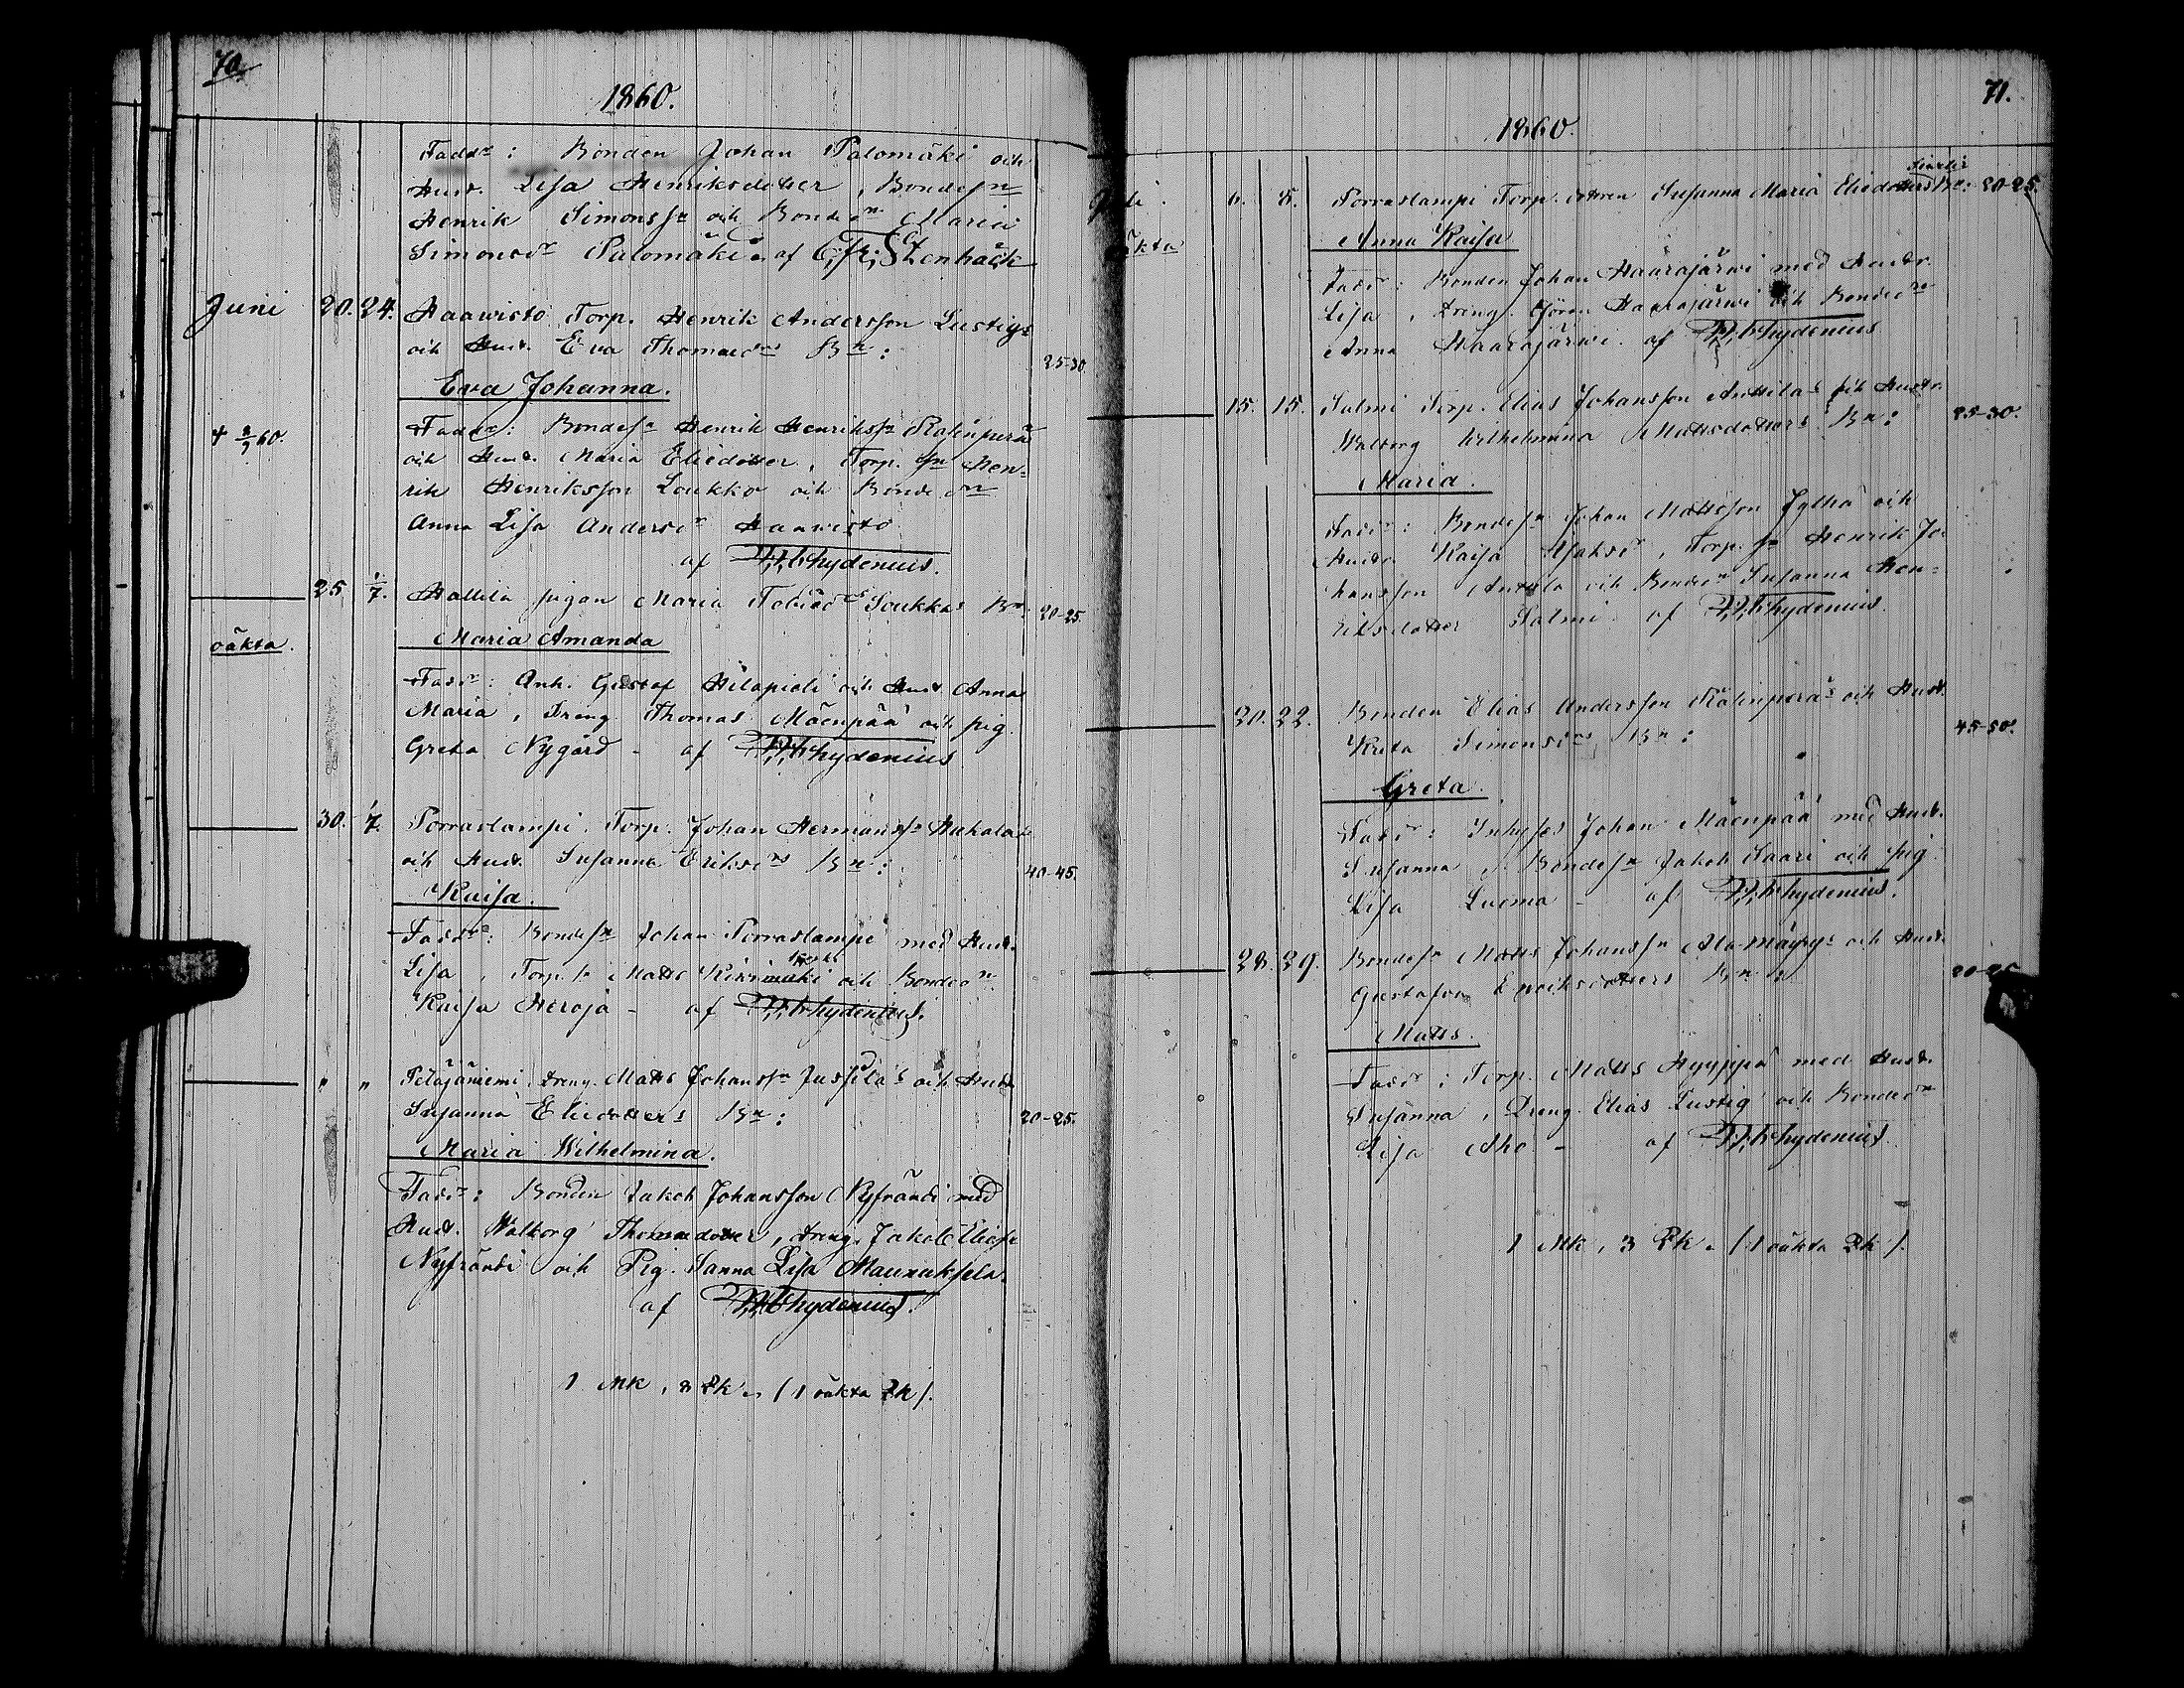 70.
1860.
Faddr: Bonden Johan Palomäki och
Hust. Lisa Henriksdotter, Bondesn
Henrik Simonssn och Bondedn Maria
Simonsdr Palomäki af C; Fr; Stenbäck
Juni 20. 24. Haawisto Torp. Henrik Andersson Lustigs
och Hust. Eva Thomasdrs Bn: 25-30
Eva Johanna.
+ 8/7 60. Faddr: Bondesn Henrik Henrikssn
och Hust. Maria Eliedotter, Torp. sn Hen-
rik Henriksson Loukko och Bondedn
Anna Lisa Andersdr Haawisto
af Chydenius.
25 1/7. Hallila pigan Maria Loukkas Bn: 20-25.
oäkta. Maria Amanda
Faddr: Gustaf och Hust. Anna
Maria, Dreng Thomas Mäenpää och pig.
Greta Nygård - af Chydenius
30. 1/7. Porraslampi Torp. Johan Hermanssn
och Hust. Susanna Eriksdrs Bn: 40-45.
Kaisa.
Faddr: Bondesn Johan Porraslampi med Hust.
Lisa, Torp. sn Matts och Bondedn
Kaisa Heroja - af Chydenius.
" " Petäjäniemi dreng. Matts Johanssn Jussila's och Hust.
Susanna Eliedotters Bn: 20-25.
Maria Wilhelmina.
Faddr: Bonden Jakob Johansson Nyfrändi med
Hust. Walborg Thomasdotter, dreng. Jakob Eliessn
Nyfrändi och Pig. Sanna Lisa Maunuksela.
af Chydenius.
1 Mk, 3 Qk. (1 oäkta Qk).
71.
1860.
6. 8. Porraslampi Torp. dottren Susanna Maria Eliedotters Bn: 20-25.
oäkta Anna Kaisa
Faddr: Bonden Johan Haarajärwi med Hustr.
Lisa, Dreng. Haarajärwi och Bondedn
Anna Haarajärwi. af Chydenius
15. 15. Salmi Torp. Elias Johansson Anttilas och Hustr.
Walborg Wilhelmina Mattsdotters Bn: 25-30.
Maria.
Faddr: Bondesn Johan Mattsson Jylhä och
Hustr. Kaisa, Torp. sn Henrik Jo-
hansson Anttila och Bondedn Susanna Hen-
riksdotter Salmi af Chydenius.
20. 22. Bonden Elias Andersson och Hust.
Kreta Simonsdrs Bn: 45-50.
Greta.
Faddr: Inhyses Johan Mäenpää med Hust.
Susanna, Bondesn Jakob Saari och pig
Lisa Luoma - af Chydenius.
28. 29. Bondesn Matts Johanssn och Hust.
Gustafva Bn: 20-25
Matts.
Faddr: Torp. Matts Hyyppä med Hust.
Susanna, Dreng. Elias Lustig och Bondedn
Lisa Aho - af Chydenius
1 Mk, 3 Qk. (1 oäkta Qk).